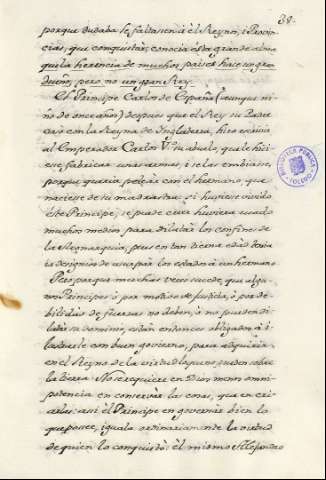 38.
porque dudaba le faltasen à èl Reynos, i Provin-
cias, que conquistar; conocia èsta grande alma
que la herencia de muchos paises hace un gran
dueño; pero no un gran Rey.
El Principe Carlos de España (aunque ni-
ño de once años) despues que el Rey su Padre
casò con la Reyna de Inglaterra, hizo escrivir
al Emperador Carlos V. su abuelo, que le hici-
ese fabricar unas armas, i se las embiase,
porque queria pelear con el hermano, que
naciese de su madrastra: si huviese vivido
este Principe, se puede creer huviera usado
muchos medios para dilatar los confines de
la Monarquia, pues en tan tierna edad tenia
designios de usurpar los estados à un hermano
Pero porque muchas veces sucede, que algu-
nos Principes ò por motivo de Justicia, ò por de-
bilidad de fuerzas no deben, ò no pueden di-
latar su dominio, estàn entonces obligados à i-
lustrarle con buen govierno, para adquirir
en el Reyno de la virtud lo que no pueden sobre
la tierra. No se requiere en Dios menos omni-
potencia en conservar las cosas, que en cri-
arlas: asi el Principe en governar bien lo
que posee, iguala ordinariamente la virtud
de quien lo conquistò: èl mismo Alejandro
BIBLIOTECA PUBLICA
TOLEDO